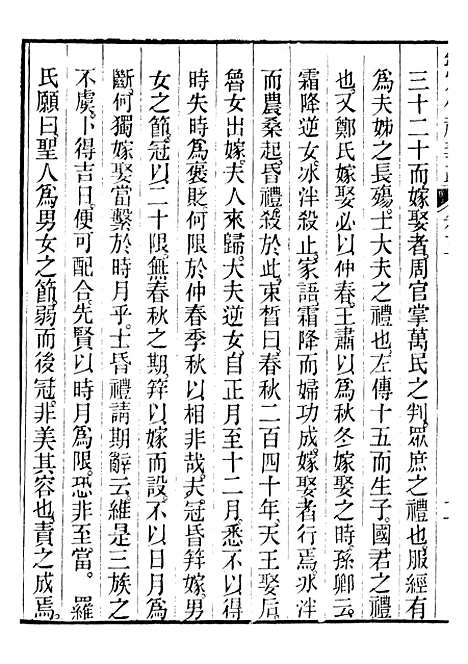 三十二十而嫁娶者周官掌萬民之判眾庶之禮也服經有
爲夫姊之長殤士大夫之禮也左傳十五而生子國君之禮
也又鄭氏嫁娶必以仲春王肅以爲秋冬嫁娶之時孫卿云
霜降逆女冰泮殺止家語霜降而婦功成嫁娶者行焉冰泮
而農桑起昏禮殺於此束晳曰春秋二百四十年天王娶后
魯女出嫁夫人來歸大夫逆女自正月至十二月悉不以得
時失時爲褒貶何限於仲春季秋以相非哉夫冠昏筓嫁男
女之節冠以二十限無春秋之期筓以嫁而設不以日月爲
斷何獨嫁娶當繫於時月乎士昏禮請期辭云維是三族之
不虞卜得吉日便可配合先賢以時月爲限恐非至當。羅
氏願曰聖人爲男女之節弱而後冠非美其容也責之成焉